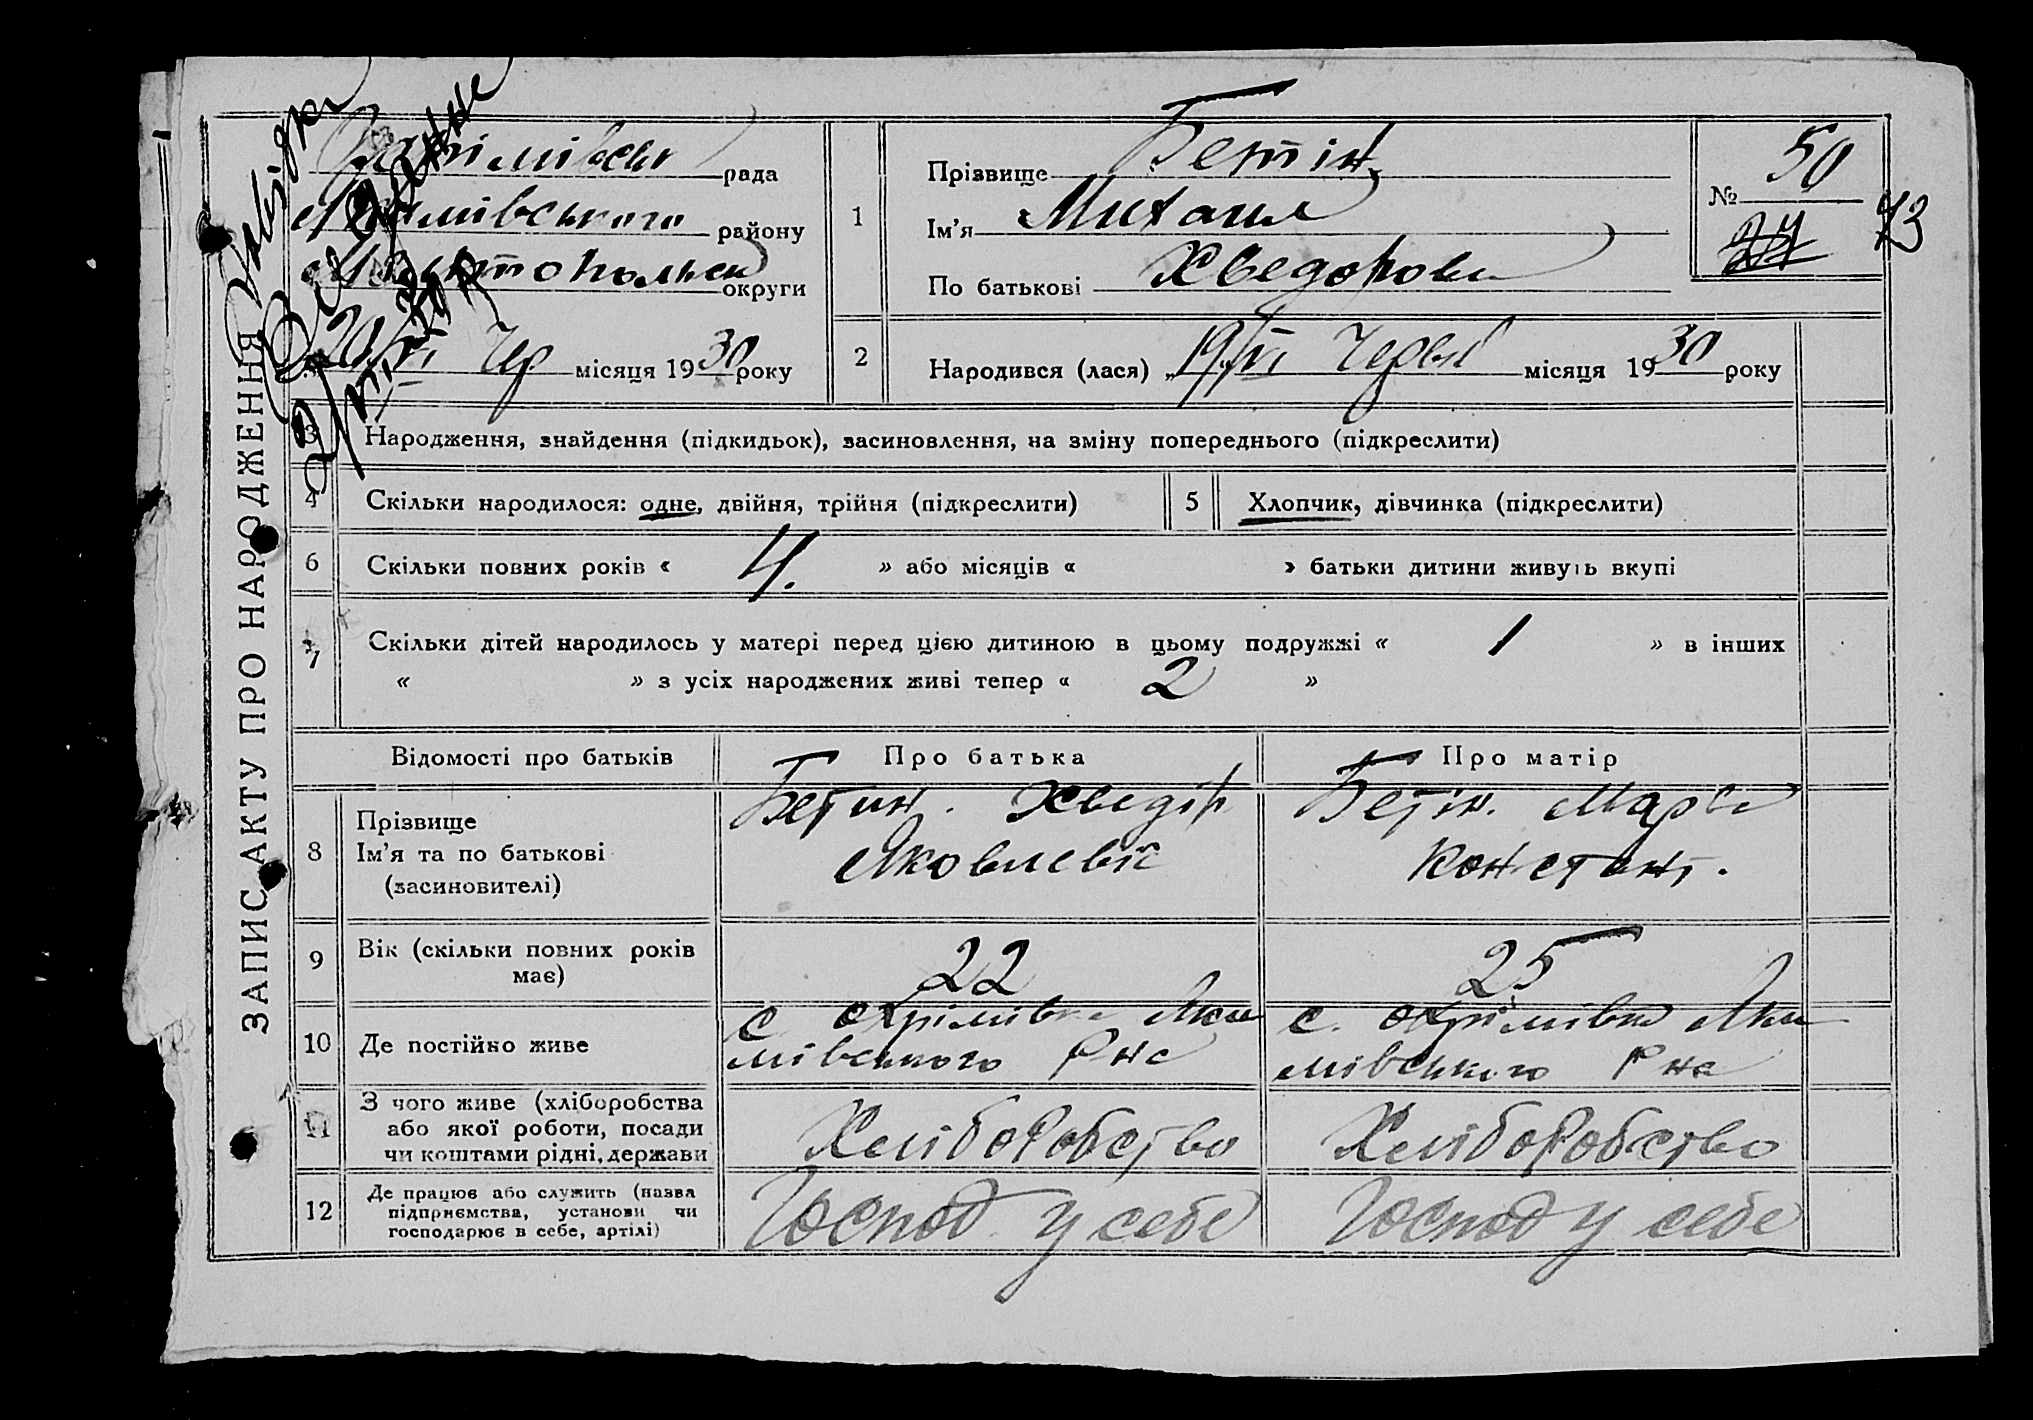 ЗАПИС АКТУ ПРО НАРОДЖЕННЯ
Охрімівськ рада
Якимівського району
Мелітопольськ округи
20/VI Чер місяця 1930 року
1
Прізвище Бетін
Ім'я Михаил
По батькові Хведорови
№ 50
73
2
Народився (лася) „19/VI Черв місяця 1930 року
3 Народження, знайдення (підкидьок), засиновлення, на зміну попереднього (підкреслити)
4 Скільки народилося: одне, двійня, трійня (підкреслити)
5 Хлопчик, дівчинка (підкреслити)
6 Скільки повних років « 4. » або місяців « » батьки дитини живуть вкупі
7 Скільки дітей народилось у матері перед цією дитиною в цьому подружжі « 1 » в інших
« » з усіх народжених живі тепер « 2 »
Відомості про батьків
Про батька
Про матір
8
Прізвище
Ім'я та по батькові
(засиновителі)
Бетин. Хведір
Яковлевіч
Бетін. Марія
Констант.
9
Вік (скільки повних років
має)
22
25
10 Де постійно живе
с Охрімівка Яки
мівського Рна
с. Охрімівка Яки
мівського Рна
11
З чого живе (хліборобства
або якої роботи, посади
чи коштами рідні, держави
Хліборобство
Хліборобство
12
Де працює або служить (назва
підприємства, установи чи
господарює в себе, артілі)
Господ у себе
Господ у себе